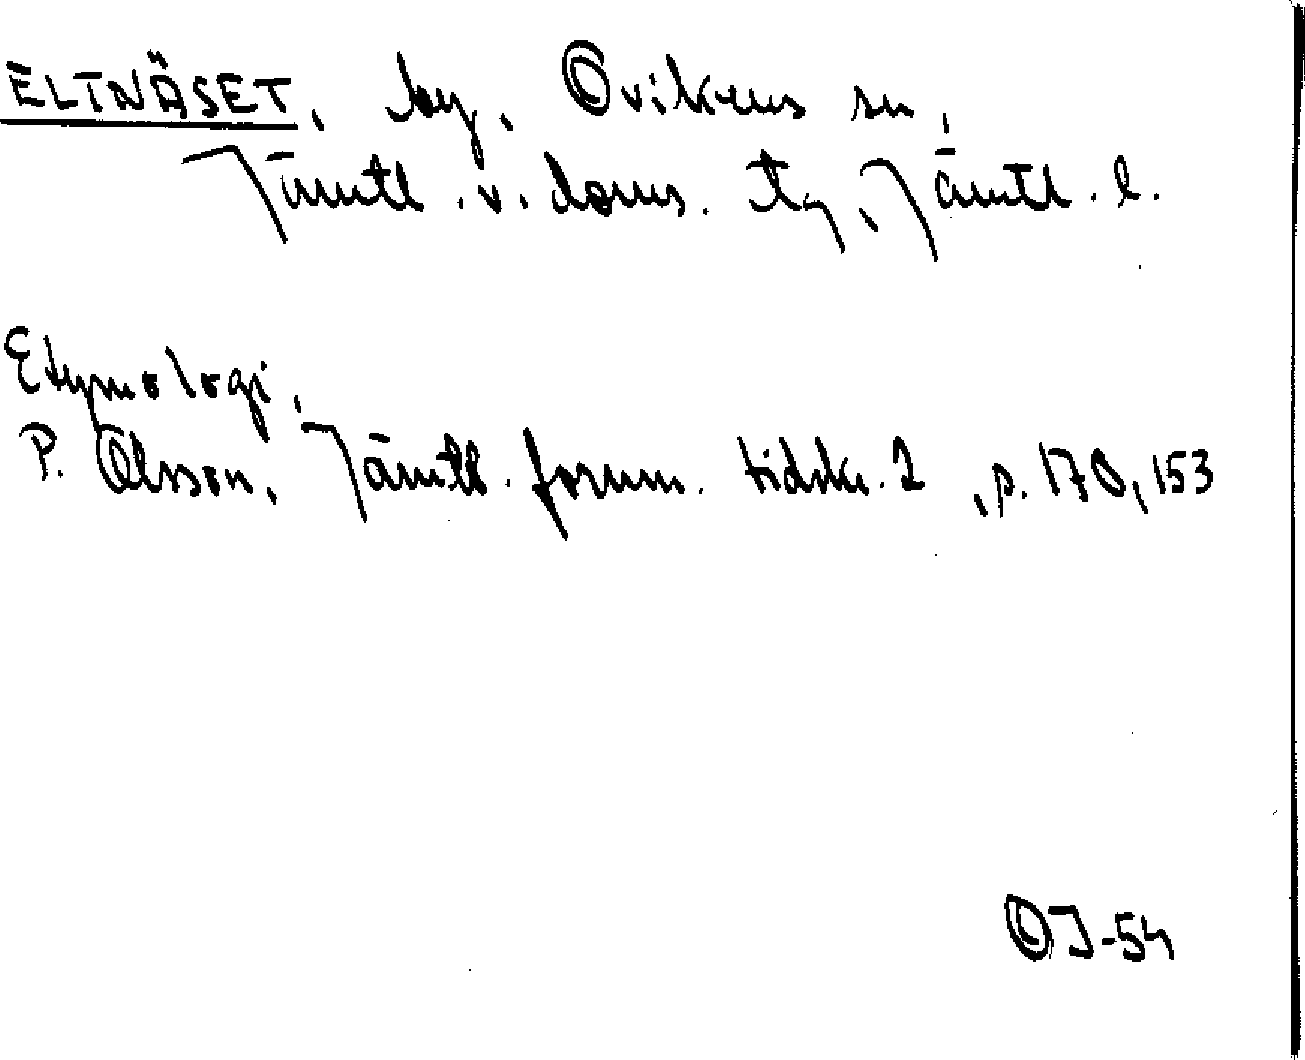 ELTNÄSET, by, Ovikens sn,
Jämtl. v. doms. tg, Jämtl. l.
Etymologi,
P. Olsson, Jämtl. fornm. tidskr. 2, s. 170, 153
OJ-54